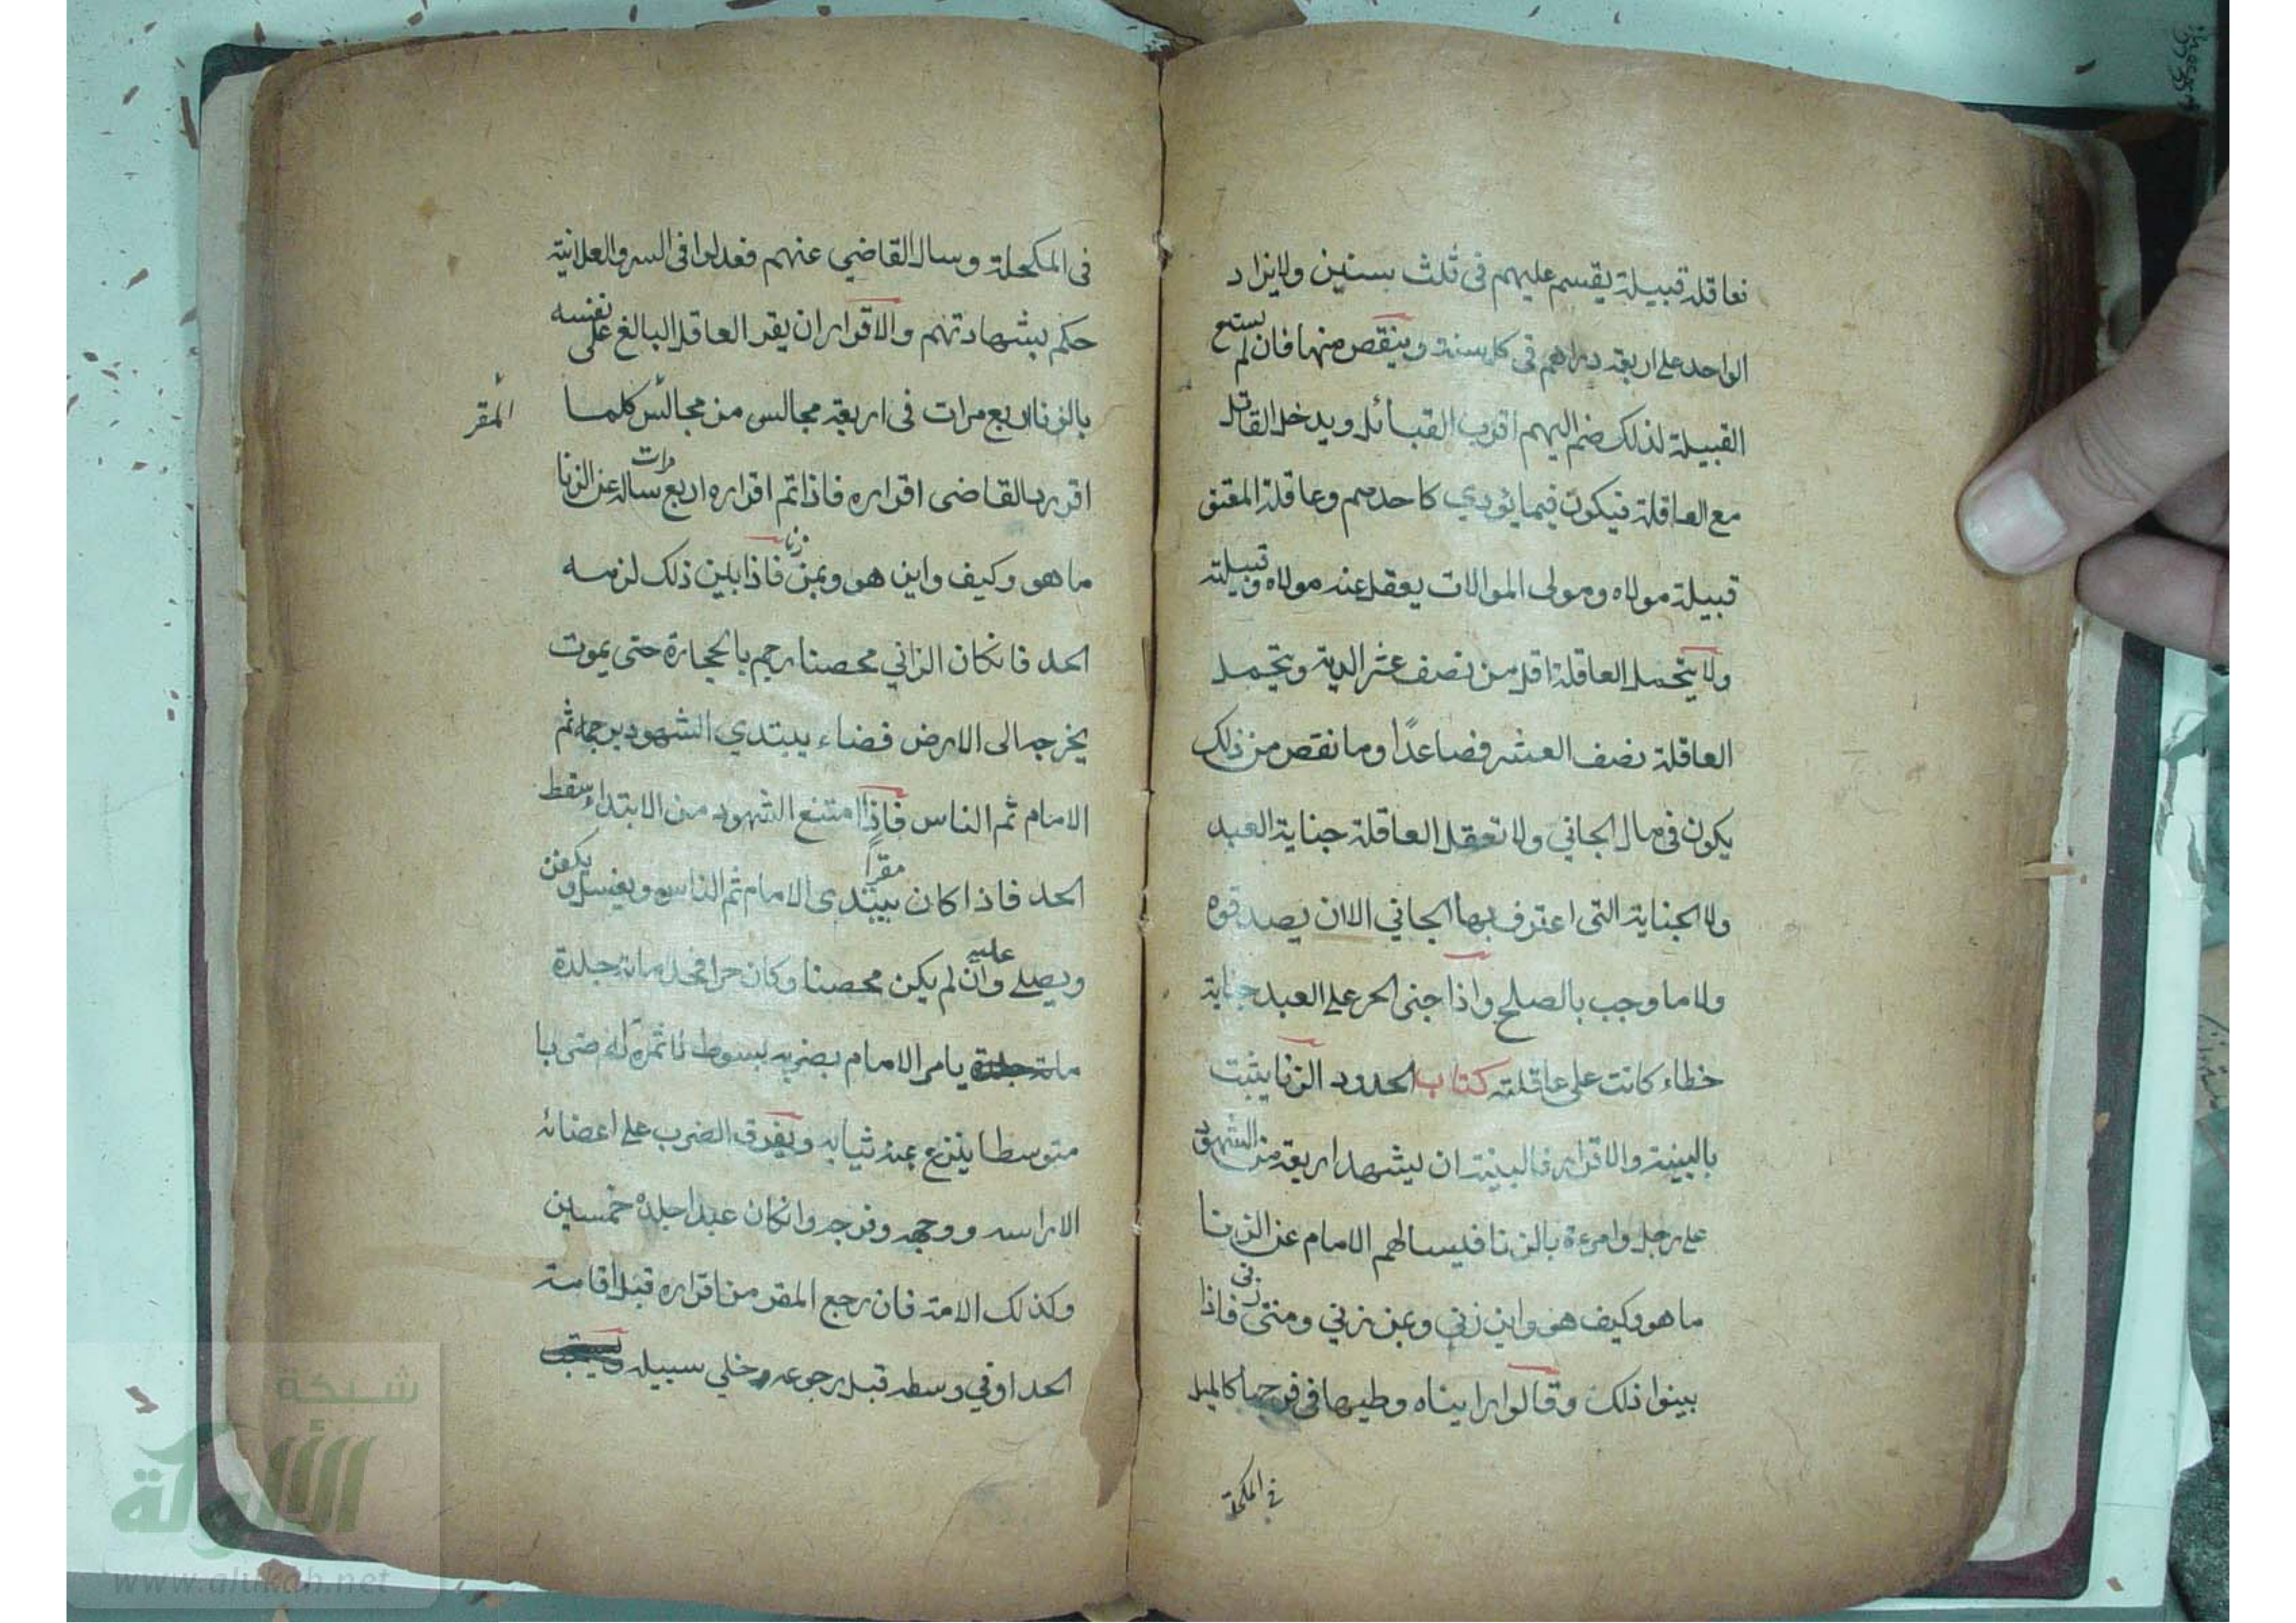 نعاقلة قبيلة يقسم عليهم فى ثلث سنين ولايزاد
الواحد على اربعة دراهم فى كل سنة وينقص منها فان لم يستع
القبيلة لذلك ضم اليهم اقرب القبائل ويدخل القاتل
مع العاقلة فيكون فيما يؤدي كاحدهم وعاقلة المعتق
قبيلة مولاه ومولى الموالات يعقل عنه مولاه وقبيلته
ولا يتحمل العاقلة اقل من نصف عشر الدية ويتحمل
العاقلة نصف العشر فصاعدًا وما نقص من ذلك
يكون فى مال الجاني ولا تعقل العاقلة جناية العبد
ولا الجناية التى اعترف بها الجاني الا ان يصدقوه
ولا ما وجب بالصلح واذا جنى الحر على العبد جناية
خطاء كانت على عاقلته كتاب الحدود الزنا يثبت
بالبينة والاقرار فالبينة ان يشهد اربعة من الشهود
على رجل وامرءة بالزنا فيسالهم الامام عن الزنا
ما هو وكيف هو واين زنى وبمن زني ومتى زنى فاذا
بينوا ذلك وقالوا رايناه وطيها فى فرجها كالميل
في المكحلة
فى المكحلة وسال القاضي عنهم فعدلوا فى السر والعلانية
حكم بشهادتهم والاقرار ان يقر العاقل البالغ على نفسه
بالزنا اربع مرات فى اربعة مجالس من مجالس كلما
المقر
اقر رده القاضى اقراره فاذا تم اقراره اربع مرات ساله عن الزنا
ما هو وكيف واين هو وبمن زنا فاذا بين ذلك لزمه
الحد فانكان الزاني محصنا رجم بالحجارة حتى يموت
يخرجه الى الارض فضاء يبتدي الشهود برجمه ثم
الامام ثم الناس فاذا امتنع الشهود من الابتداء سقط
الحد فاذا كان مقرًا يبتدى الامام ثم الناس ويغسل ويكفن
ويصلى عليه وان لم يكن محصنا وكان حرا فحده مائة جلدة
مائة جلدة يامر الامام بضربه بسوط لا ثمرة له ضربا
متوسطا ينزع عنه ثيابه ويفرق الضرب على اعضائه
الا راسه ووجهه وفرجه وانكان عبدا جلده خمسين
وكذلك الامة فان رجع المقر من اقراره قبل اقامة
الحد او في وسطه قبل رجوعه وخلي سبيله ويستحب
شبكة
الألوكة
www.alukah.net